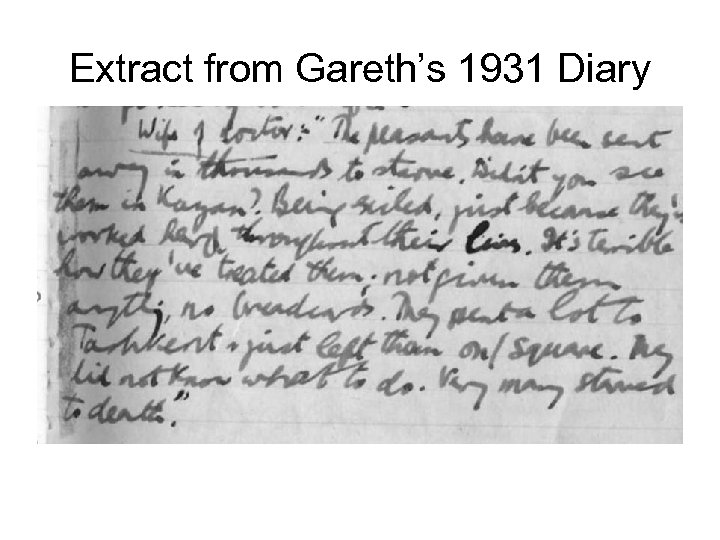 Extract from Gareth’s 1931 Diary
Wife of doctor:- "The peasants have been sent
away in thousands to starve. Didn't you see
them in Kazan? Being exiled, just because they've
worked hard throughout their lives. It's terrible
how they've treated them; not given them
anything, no bread cards. They sent a lot to
Tashkent & just left them on / square. They
did not know what to do. Very many starved
to death."